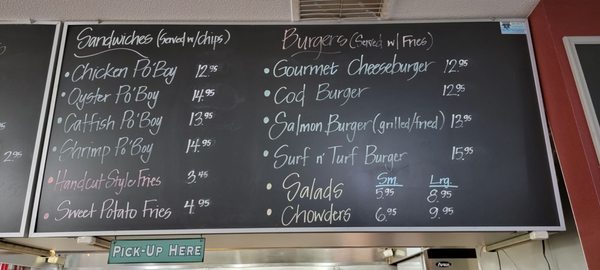 Sandwiches (Served w/chips)
Chicken Po'Boy 12.95
Oyster Po'Boy 14.95
Catfish Po'Boy 13.95
Shrimp Po'Boy 14.95
Handcut Style Fries 3.45
Sweet Potato Fries 4.95
Burgers (Served w/ Fries)
Gourmet Cheeseburger 12.95
Cod Burger 12.95
Salmon Burger (grilled/fried) 13.95
Surf n' Turf Burger 15.95
Sm Lrg.
Salads 5.95 8.95
Chowders 6.95 9.95
PICK-UP HERE